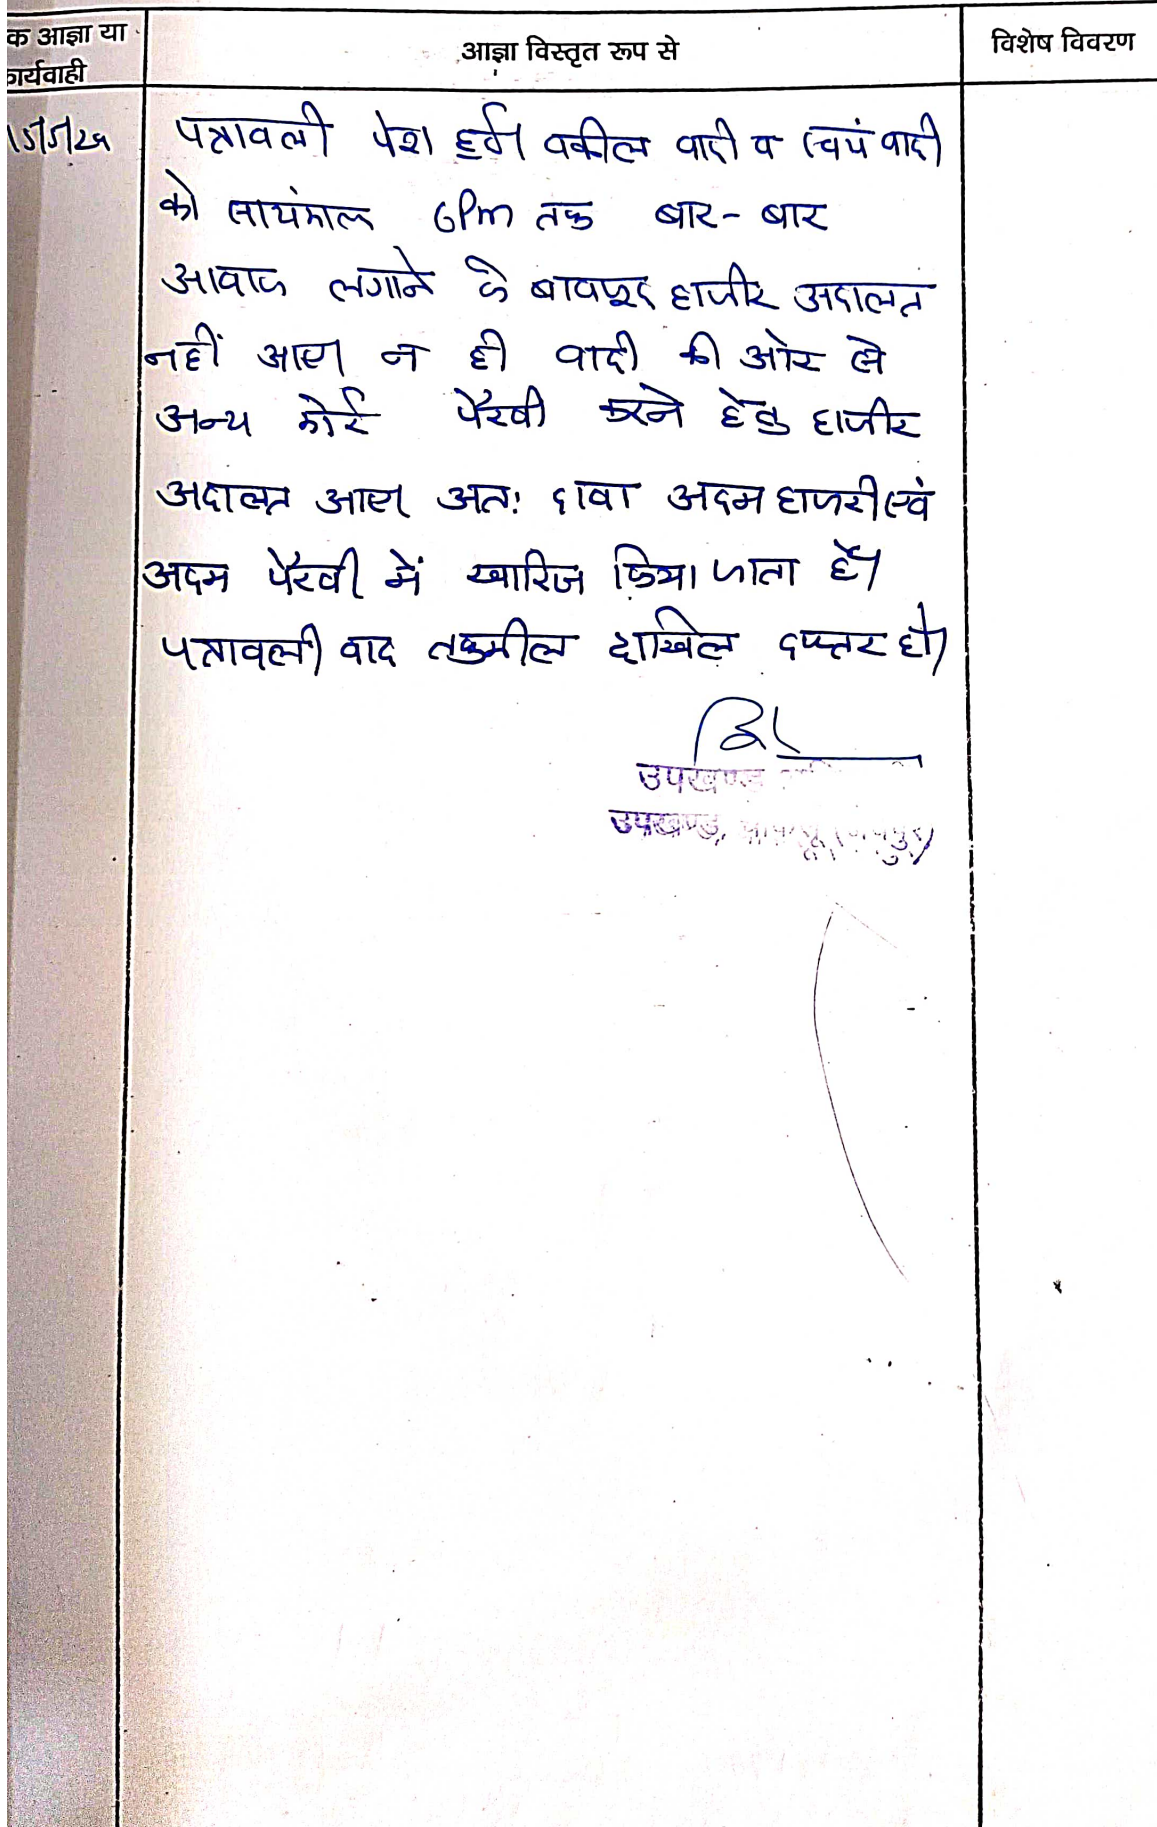 क आज्ञा या
कार्यवाही
आज्ञा विस्तृत रूप से
विशेष विवरण
पत्रावली पेश हुई। वकील वादी व स्वयं वादी
को सायंकाल 6Pm तक बार-बार
आवाज लगाने के बावजूद हाजीर अदालत
नहीं आए। न ही वादी की ओर से
अन्य कोई पैरवी करने हेतु हाजीर
अदालत आए। अतः दावा अदम हाजरी एवं
अदम पैरवी में खारिज किया जाता है।
पत्रावली वाद तकमील दाखिल दफ्तर हो।
उपखण्ड
उपखण्ड,